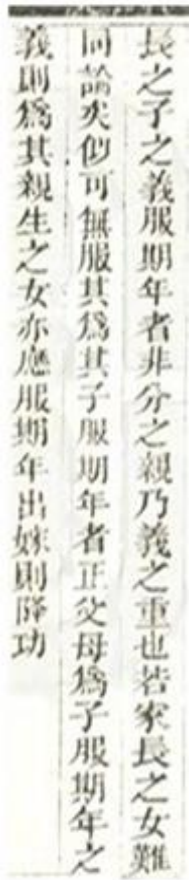 長之子之義服期年者非分之親乃義之重也若家長之女難
同論矣似可無服其爲其子服期年者正父母爲子服期年之
義則爲其親生之女亦應服期年出嫁則降功